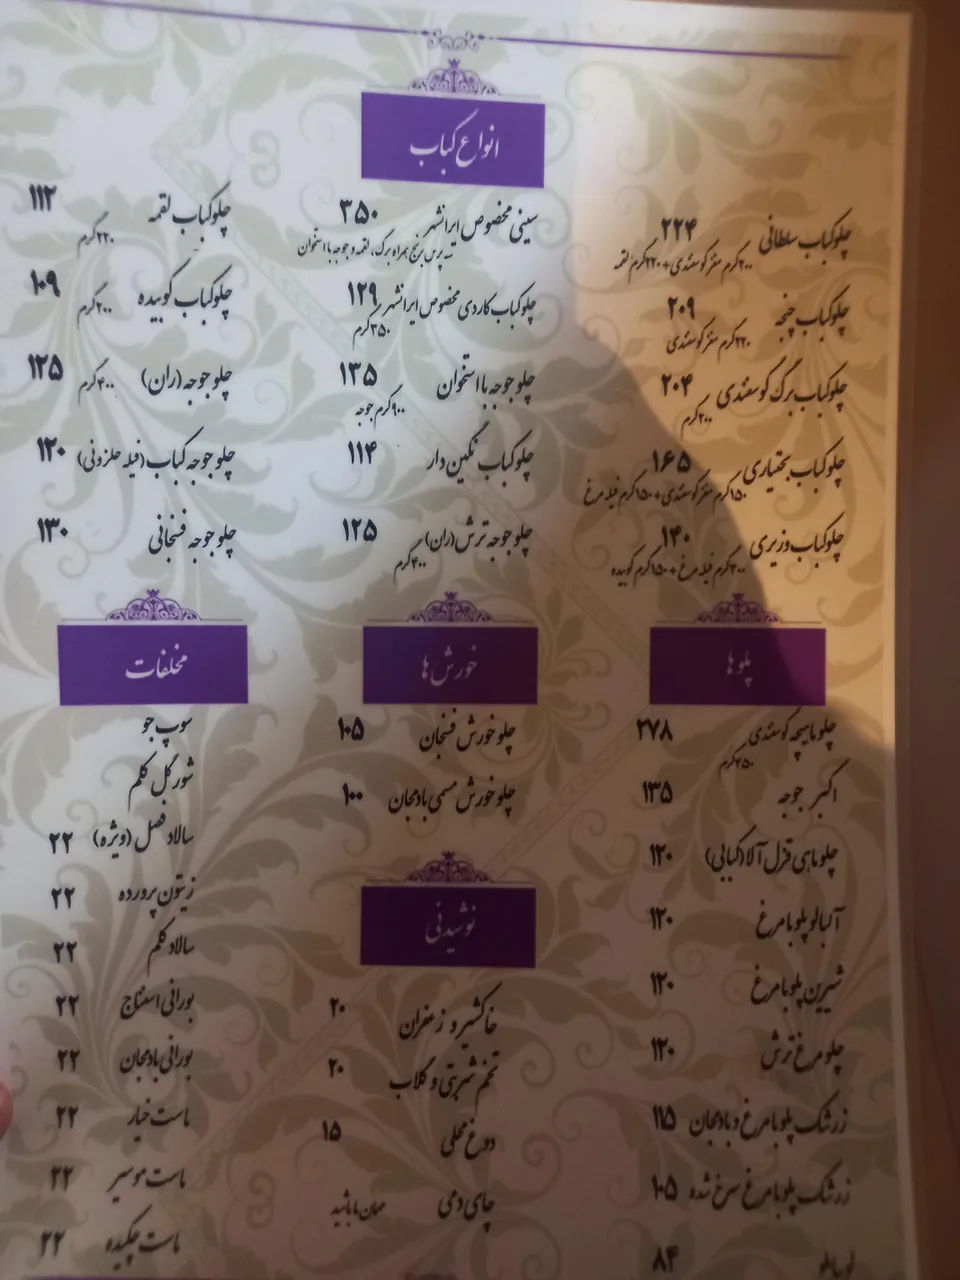 انواع کباب
چلوکباب سلطانی ۲۲۴
۲۰۰گرم مغز گوسفندی+۲۲۰گرم لقمه
چلوکباب چنجه ۲۰۹
۲۲۰گرم مغز گوسفندی
چلوکباب برگ گوسفندی ۲۰۴
۲۰۰گرم
چلوکباب بختیاری ۱۶۵
۱۵۰گرم مغز گوسفندی+۱۵۰گرم فیله مرغ
چلوکباب وزیری ۱۴۰
۲۰۰گرم فیله مرغ+۱۵۰گرم کوبیده
سینی مخصوص ایرانشهر ۳۵۰
سه پرس برنج همراه برگ، لقمه و جوجه با استخوان
چلوکباب کاردی مخصوص ایرانشهر ۱۲۹
۲۵۰گرم
چلو جوجه با استخوان ۱۳۵
۹۰۰گرم جوجه
چلوکباب نگین دار ۱۱۴
چلو جوجه ترش (ران) ۱۲۵
۴۰۰گرم
چلوکباب لقمه ۱۱۲
۲۲۰گرم
چلوکباب کوبیده ۱۰۹
۲۰۰گرم
چلو جوجه (ران) ۴۰۰گرم ۱۲۵
چلو جوجه کباب (فیله حلزونی) ۱۲۰
چلو جوجه فنجانی ۱۳۰
پلو ها
چلو ماهیچه گوسفندی ۲۷۸
۲۵۰گرم
اکبر جوجه ۱۳۵
چلو ماهی قزل آلا (کبابی) ۱۲۰
آلبالو پلو با مرغ ۱۲۰
شیرین پلو با مرغ ۱۲۰
چلو مرغ ترش ۱۲۰
زرشک پلو با مرغ و بادمجان ۱۱۵
زرشک پلو با مرغ سرخ شده ۱۰۵
لوبیا پلو ۸۴
خورش ها
چلو خورش فسنجان ۱۰۵
چلو خورش مسمی بادمجان ۱۰۰
نوشیدنی
خاکشیر و زعفران ۲۰
تخم شربتی و گلاب ۲۰
دوغ محلی ۱۵
چای دمی مهمان ما باشید
مخلفات
سوپ جو
شور گل کلم
سالاد فصل (ویژه) ۲۲
زیتون پرورده ۲۲
سالاد کلم ۲۲
بورانی اسفناج ۲۲
بورانی بادمجان ۲۲
ماست خیار ۲۲
ماست موسیر ۲۲
ماست چکیده ۲۲